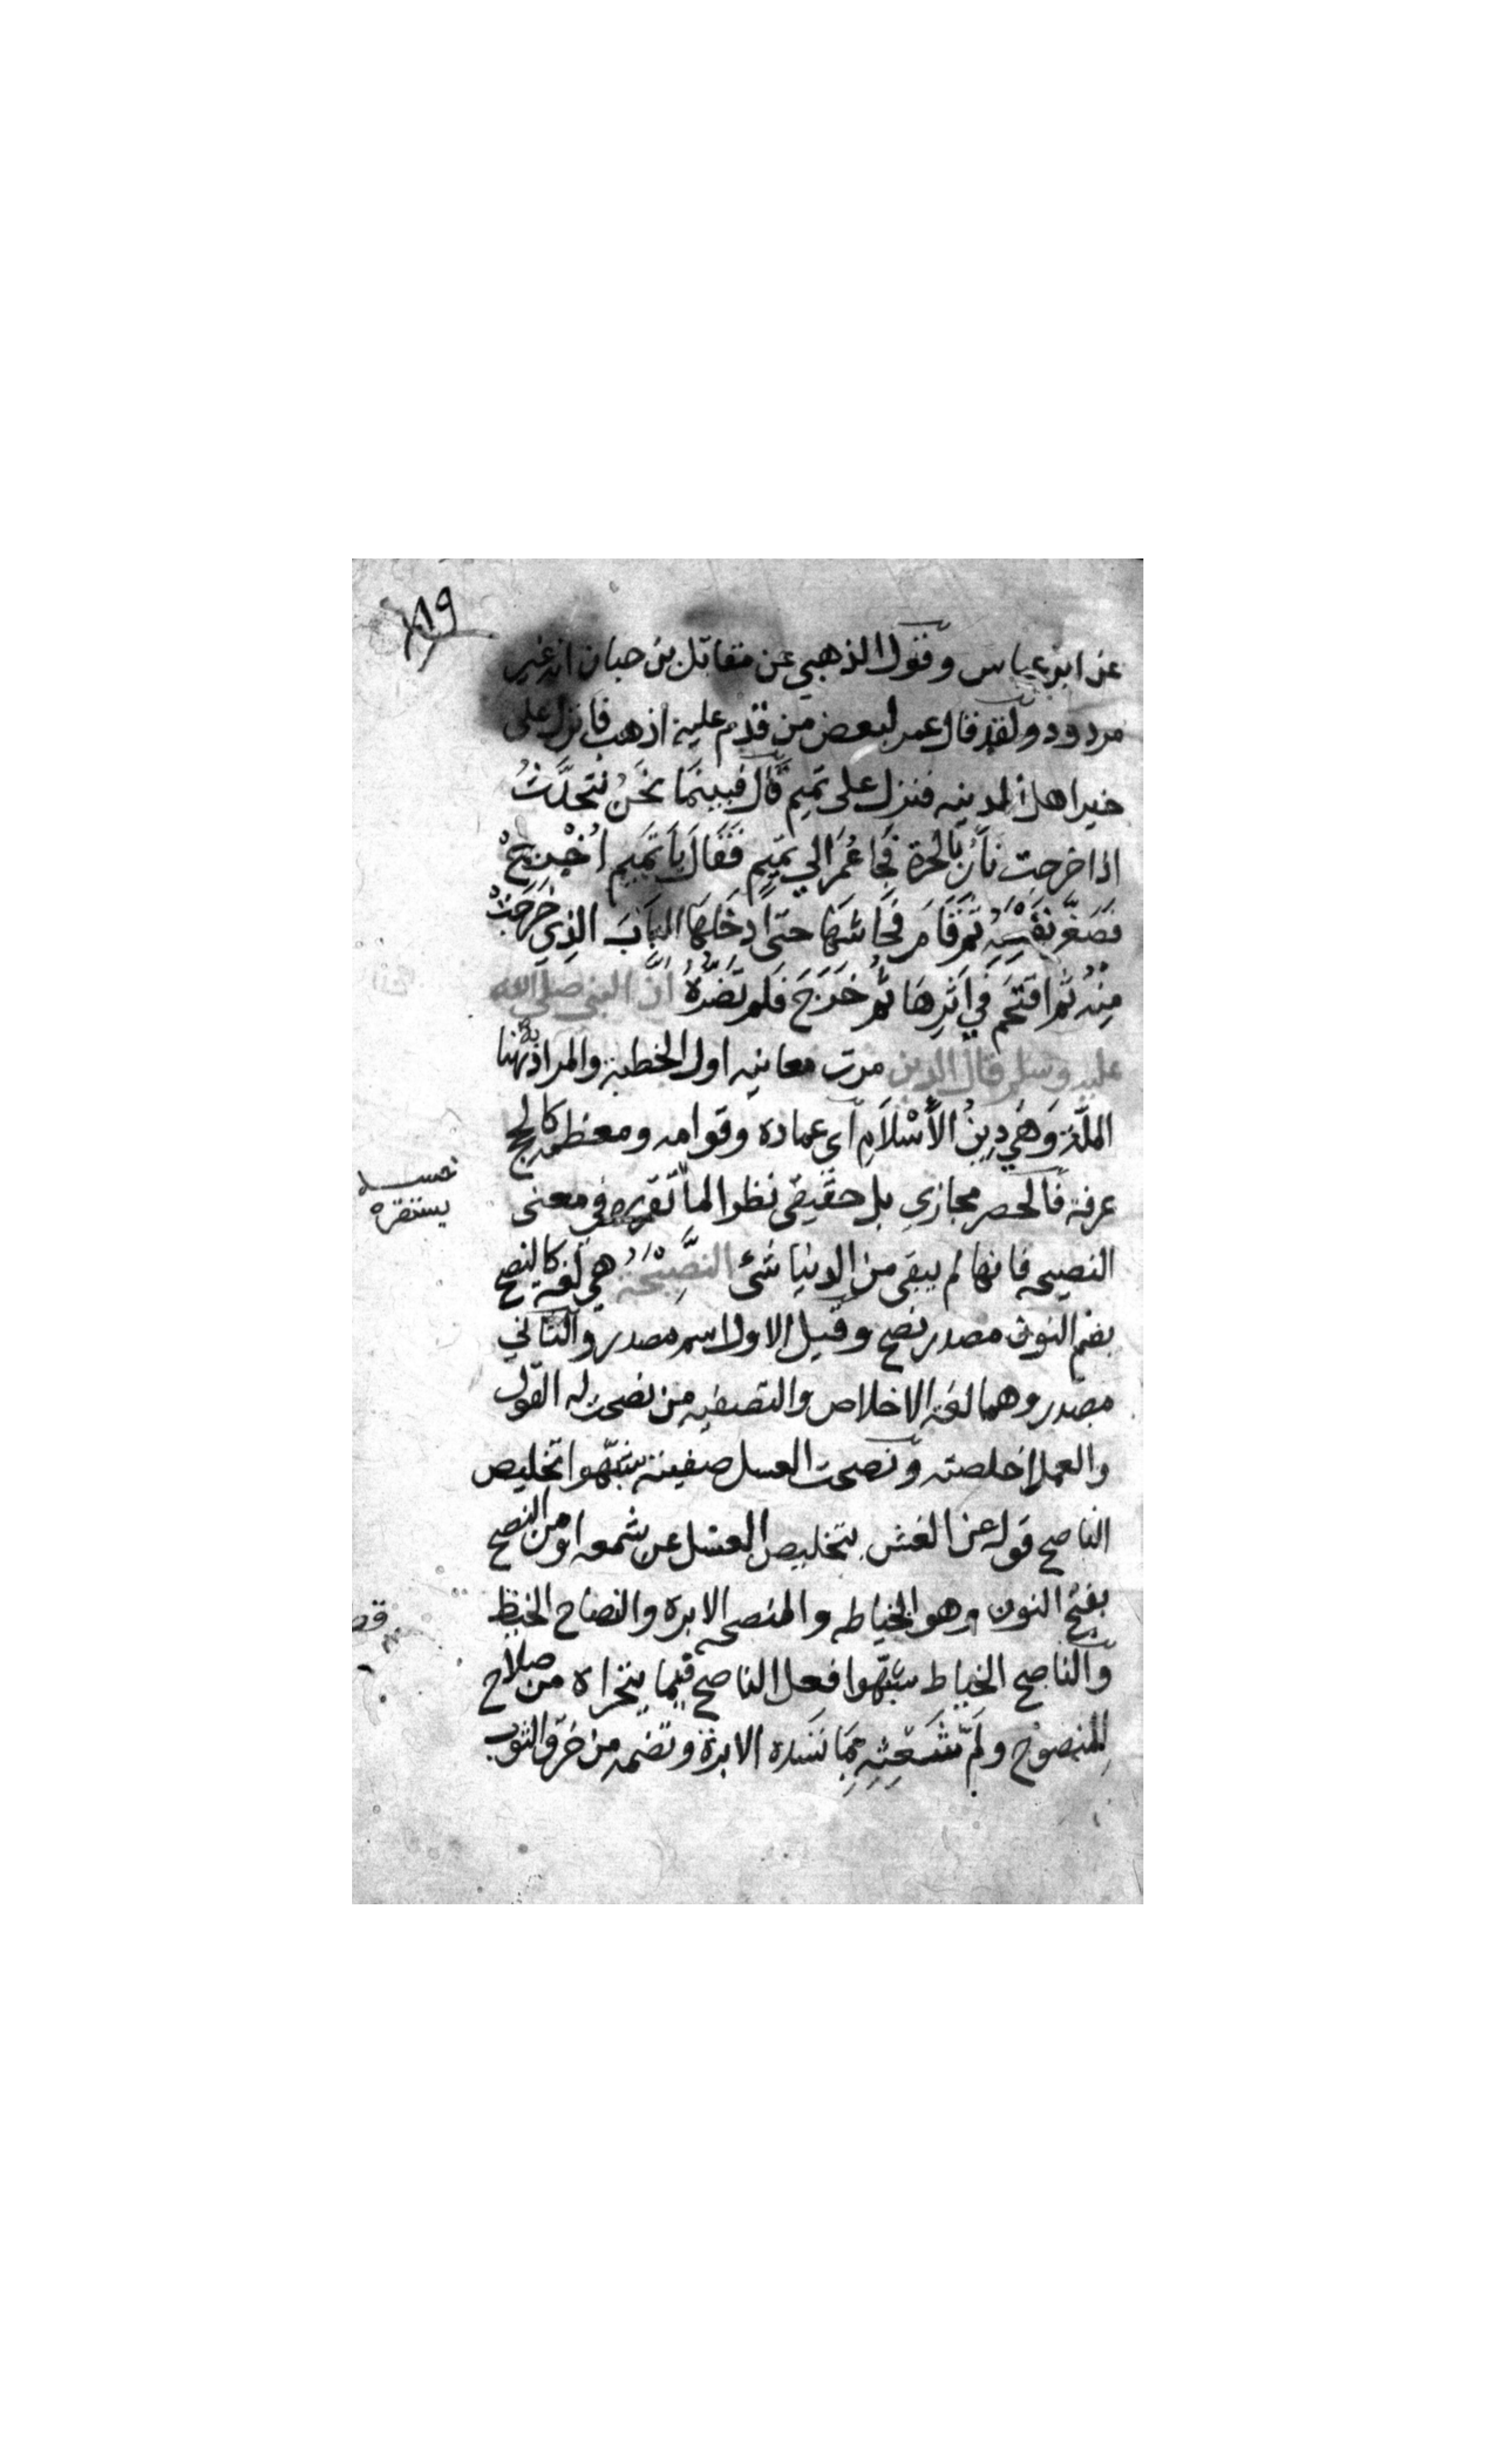 ١٩
عن ابن عباس وقول الذهبي عن مقاتل بن حبان انه غير
مردود ولقد قال عمر لبعض من قدم عليه اذهب فانزل على
خير اهل المدينه فنزل على تميم قال فبينما نَحْنُ نتحدَّثُ
اذا خرجت نَارٌ بالحرة فَجَا عُمَرَ الي تميم فَقَالَ يَا تَمِيم اُخْرج
فَصَغَّر نفسه ثم قَامَ فَحَاشَهَا حتى ادخَلَهَا البَابَ الذي خَرجَتْ
مِنْهُ ثم اقتَحَم في اَثرِهَا ثُم خَرَجَ فَلم تَضُرَّهُ أنّ النبي صلي الله
عليه وسلم قال الدين مرت معانيه اول الخطبة والمراد به هنا
الملّة وَهي دِينُ الأسْلاَمِ اى عماده وقوامه ومعظمه كالحج
عرفة فالحصر مجازي بل حقيقي نظرا لما تقرره في معنى
يستقره
النصيحه فانها لم يبقى من الدنيا شئ النَّصِيْحَةُ هي لغة كالنصح
بضم النون مصدر نصح وقيل الاول اسم مصدر والثاني
مصدر وهما لغة الاخلاص والتصفيه من نصحت له القول
والعمل اخلصته ونصحت العسل صفيته شبّهوا تخليص
الناصح قوله عن الغش بتخليص العسل عن شمعه او من النصح
بفتح النون وهو الخياطه والمنصحه الابرة والنصاح الخيط
والناصح الخياط شبّهوا فعل الناصح فيما يتحراه من صلاح
للمنصوح ولَمّ شَعَثِهِ بِمَا تَسَده الابرة وتضمه من خرق الثوب